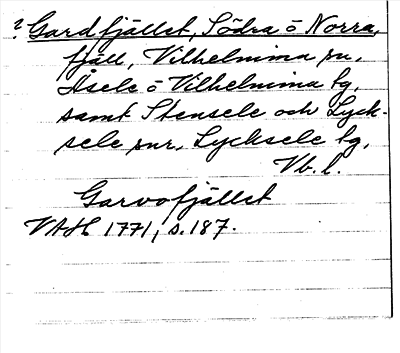 ? Gardfjället, Södra o Norra,
fjäll, Vilhelmina sn,
Åsele o Vilhelmina tg,
samt Stensele och Lyck-
sele snr, Lycksele tg,
Vb. l.
Garvofjället
VAH 1771, s. 187.